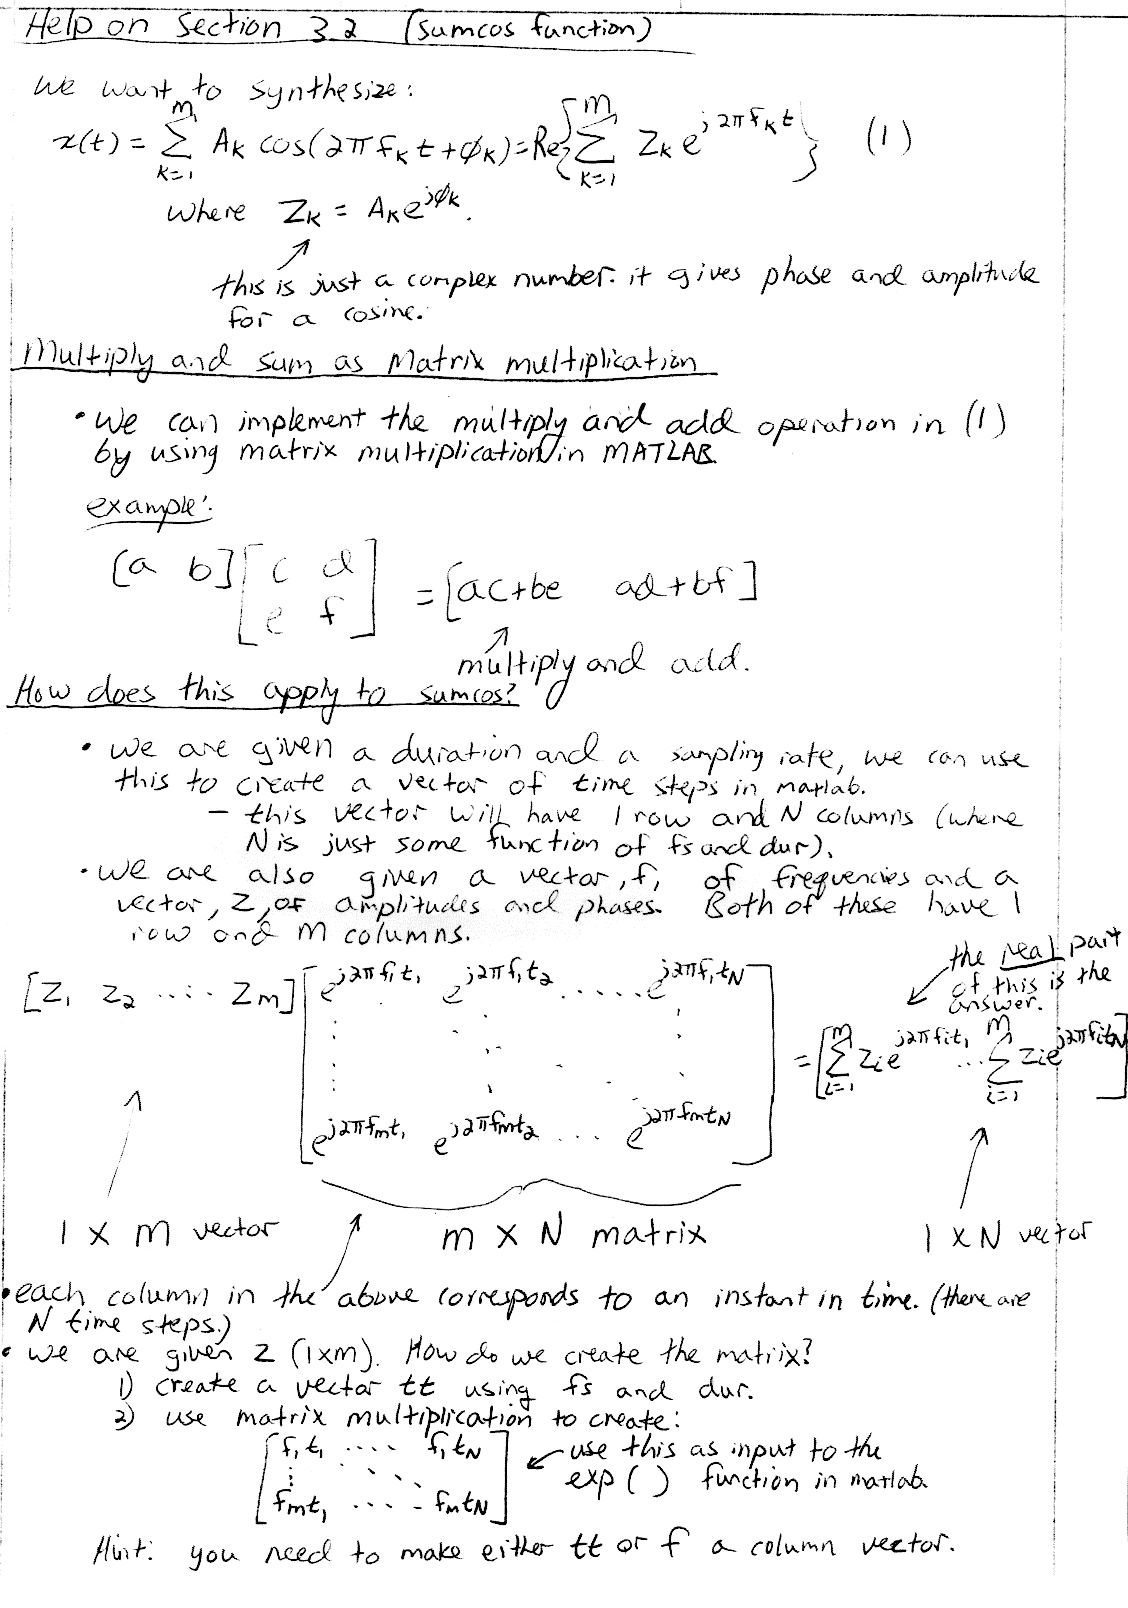 Help on Section 3.2 (sumcos function)
we want to synthesize:
x(t) = ∑_{k=1}^{m} A_k cos(2πf_k t + φ_k) = Re{∑_{k=1}^{m} Z_k e^{j2πf_k t}} (1)
where Z_k = A_k e^{jφ_k}.
this is just a complex number. it gives phase and amplitude
for a cosine.
Multiply and sum as Matrix multiplication
• we can implement the multiply and add operation in (1)
by using matrix multiplication in MATLAB.
example:
[a b] [c d
e f] = [ac+be ad+bf]
multiply and add.
How does this apply to sumcos?
• we are given a duration and a sampling rate, we can use
this to create a vector of time steps in matlab.
– this vector will have 1 row and N columns (where
N is just some function of fs and dur).
• we are also given a vector, f, of frequencies and a
vector, Z, of amplitudes and phases. Both of these have 1
row and M columns.
the real part
of this is the
answer.
[Z_1 Z_2 ..... Z_m] [e^{j2πf_1t_1} e^{j2πf_1t_2} ..... e^{j2πf_1t_N}
e^{j2πf_mt_1} e^{j2πf_mt_2} ... e^{j2πf_mt_N}] = [∑_{i=1}^{m} Z_i e^{j2πf_it_1} ... ∑_{i=1}^{m} Z_i e^{j2πf_it_N}]
1 x m vector m x N matrix 1 x N vector
• each column in the above corresponds to an instant in time. (there are
N time steps.)
• we are given Z (1xm). How do we create the matrix?
1) create a vector tt using fs and dur.
2) use matrix multiplication to create:
[f_1t_1 .... f_1t_N
f_mt_1 .... f_mt_N] use this as input to the
exp( ) function in matlab.
Hint: you need to make either tt or f a column vector.